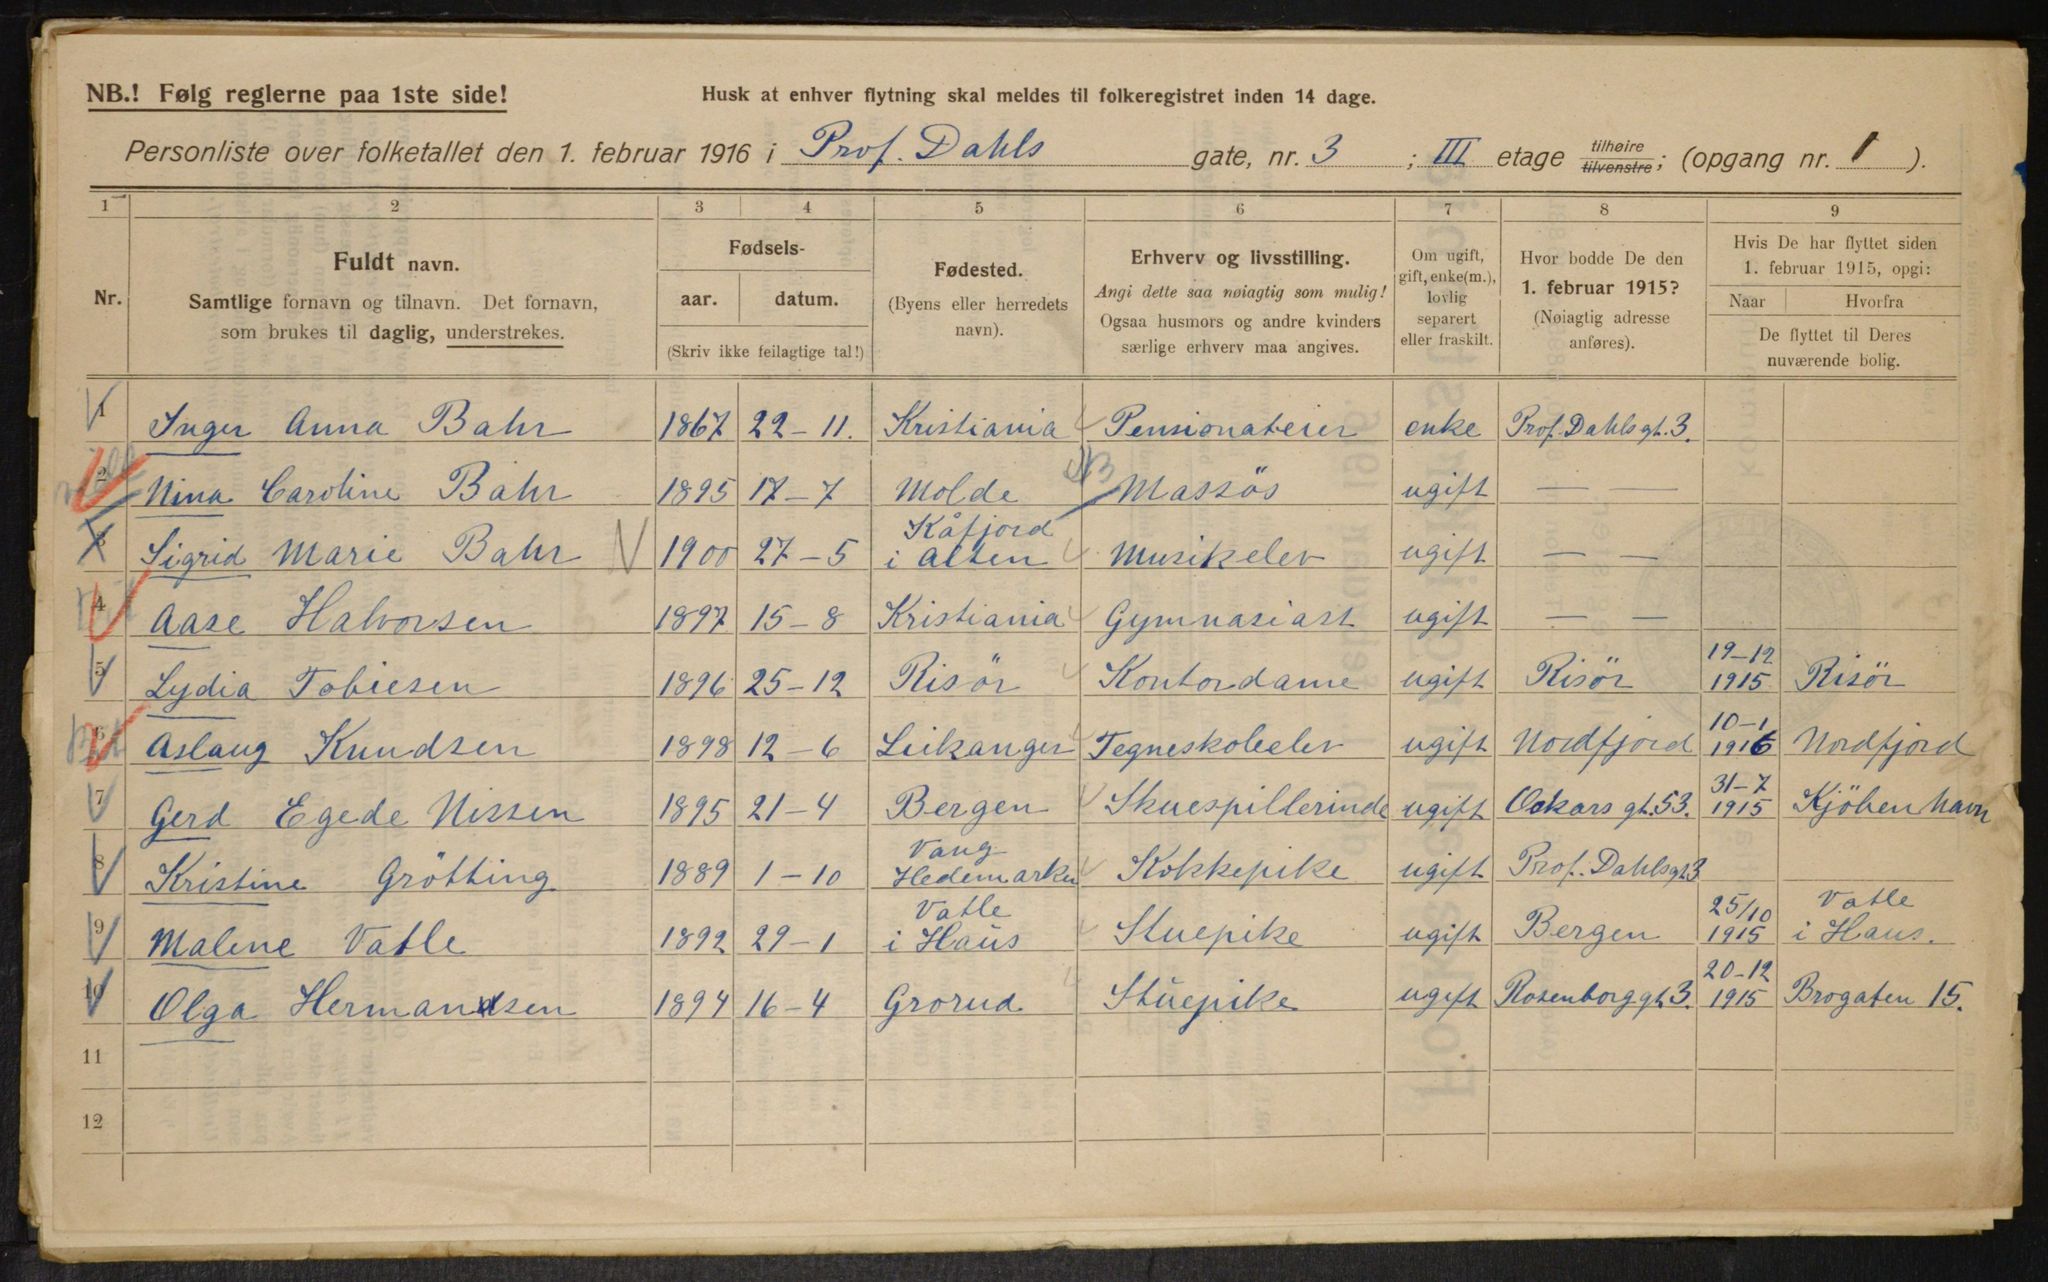 NB.! Følg reglerne paa 1ste side!
Husk at enhver flytning skal meldes til folkeregistret inden 14 dage.
Personliste over folketallet den 1. februar 1916 i Prof. Dahls gate, nr. 3 ; III etage tilhøire tilvenstre; (opgang nr. 1 ).
1 2 3 4 5 6 7 8 9
Nr.
Fuldt navn.
Samtlige fornavn og tilnavn. Det fornavn,
som brukes til daglig, understrekes.
Fødsels-
aar. datum.
(Skriv ikke feilagtige tal!)
Fødested.
(Byens eller herredets
navn).
Erhverv og livsstilling.
Angi dette saa nøiagtig som mulig!
Ogsaa husmors og andre kvinders
særlige erhverv maa angives.
Om ugift,
gift, enke(m.),
lovlig
separert
eller fraskilt.
Hvor bodde De den
1. februar 1915?
(Nøiagtig adresse
anføres).
Hvis De har flyttet siden
1. februar 1915, opgi:
Naar Hvorfra
De flyttet til Deres
nuværende bolig.
1 Inger Anna Bahr 1867 22-11. Kristiania Pensionateier enke Prof. Dahls gt. 3.
2 Nina Caroline Bahr 1895 17-7 Molde Massös ugift — —
3 Sigrid Marie Bahr N 1900 27-5 Kåfjord i Alten Musikelev ugift — —
4 Aase Halvorsen 1897 15-8 Kristiania Gymnasiast ugift — —
5 Lydia Tobiesen 1896 25-12 Risör Kontordame ugift Risör 19-12 1915 Risör
6 Aslaug Knudsen 1898 12-6 Leikanger Tegneskoleelev ugift Nordfjord 10-1 1916 Nordfjord
7 Gerd Egede Nissen 1895 21-4 Bergen Skuespillerinde ugift Oskars gt. 53. 31-7 1915 Kjöbenhavn
8 Kristine Grötting 1889 1-10 Vang Hedemarken Kokkepike ugift Prof. Dahls gt 3
9 Malene Vatle 1892 29-1 Vatle i Haus Stuepike ugift Bergen 25/10 1915 Vatle i Haus.
10 Olga Hermansen 1894 16-4 Grorud Stuepike ugift Rosenborggt 3. 20-12 1915 Brogaten 15.
11
12